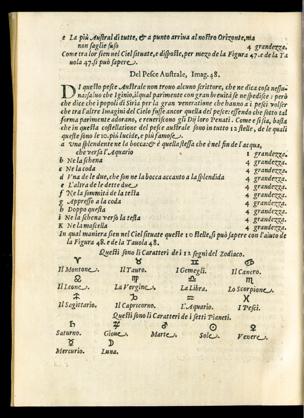 e La più Austral di tutte, & a punto arriva al nostro Orizonte, ma
non saglie suso 4 grandezza.
Come tra lor sien nel Ciel situate, e disposte, per mezo de la Figura 47. e de la Ta
vola 47. si può sapere.
Del Pesce Australe, Imag. 48.
DI questo pesce Australe non trovo alcuno scrittore, che ne dica cosa nessu-
na: salvo che Iginio, il qual parimente con gran brevità se ne spedisce: però
che dice che i popoli di Siria per la gran veneratione che hanno a i pesci volser
che tra l'altre Imagini del Cielo fusse ancor quella del pesce: essendo che sotto tal
forma parimente adorano, e reveriscono gli Dij loro Penati. Come e si sia, basta
che in questa costellatione del pesce Australe sono in tutto 12 stelle, de le quali
queste sono le 10. più lucide, e più famose.
a Una splendente ne la bocca: & è quella stessa che è nel fin de l'acqua,
che versa l'Aquario 1 grandezza.
b Ne la schena 4 grandezza.
c Ne la coda 4 grandezza.
d Una de le due, che son ne la bocca accanto a la splendida 4 grandezza.
e L'altra de le dette due 4 grandezza.
f Ne la sommità de la testa 4 grandezza.
g Appresso a la coda 4 grandezza.
h Doppo questa 4 grandezza.
i Ne la schena verso la testa 4 grandezza.
K Ne la mascella 4 grandezza.
In qual maniera sien nel Ciel situate queste 10 stelle, si può sapere con l'aiuto de
la Figura 48. e de la Tavola 48.
Questi sono li Caratteri de i 12 segni del Zodiaco.
♈ ♉ ♊ ♋
Il Montone. Il Tauro. I Gemegli. Il Canero.
♌ ♍ ♎ ♏
Il Leone. La Vergine. La Libra. Lo Scorpione.
♐ ♑ ♒ ♓
Il Sagittario. Il Capricorno. L'Aquario. I Pesci.
Questi sono li Caratteri de i setti Pianeti.
♄ ♃ ♂ ☉ ♀
Saturno. Giove. Marte. Sole. Venere.
☿ ☽
Mercurio. Luna.